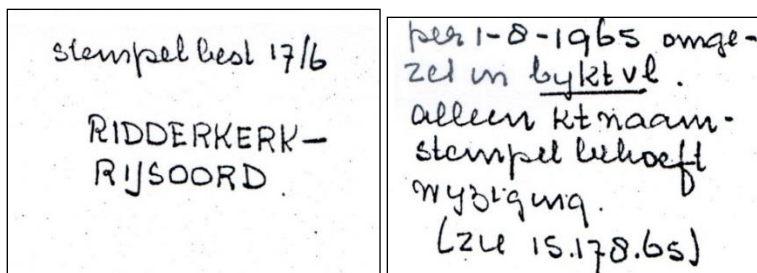 stempel best 17/6
RIDDERKERK-
RIJSOORD
per 1-8-1965 omge-
zet in byktvl.
alleen ktnaam-
stempel behoeft
wyziging.
(zie 15.178.65)